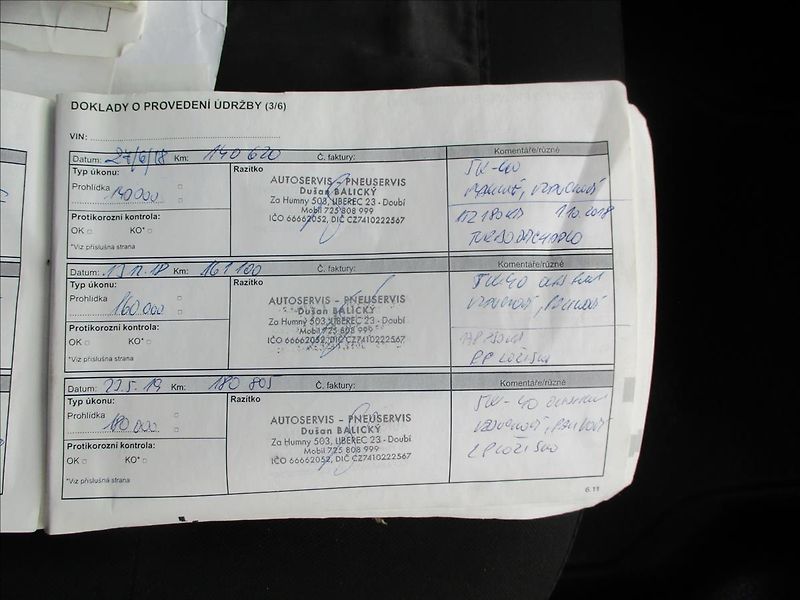 DOKLADY O PROVEDENÍ ÚDRŽBY (3/6)
VIN:
Datum: 27/6/18 Km: 140 620 Č. faktury: Komentáře/různé
Typ úkonu: Razítko
Prohlídka
140.000
AUTOSERVIS - PNEUSERVIS
Dušan BALICKÝ
Za Humny 503, LIBEREC 23 - Doubí
Mobil 725 808 999
IČO 66662052, DIČ CZ7410222567
Protikorozní kontrola:
OK KO*
*Viz příslušná strana
5W-40
172180 1.10 2018
TURBODMYCHADLO
Datum: 13.12.18 Km: 161 100 Č. faktury: Komentáře/různé
Typ úkonu: Razítko
Prohlídka
160.000
AUTOSERVIS - PNEUSERVIS
Dušan BALICKÝ
Za Humny 503, LIBEREC 23 - Doubí
Mobil 725 808 999
IČO 66662052, DIČ CZ7410222567
Protikorozní kontrola:
OK KO*
*Viz příslušná strana
5W40
PP LOŽISKO
Datum: 22.5.19 Km: 180 805 Č. faktury: Komentáře/různé
Typ úkonu: Razítko
Prohlídka
180.000
AUTOSERVIS - PNEUSERVIS
Dušan BALICKÝ
Za Humny 503, LIBEREC 23 - Doubí
Mobil 725 808 999
IČO 66662052, DIČ CZ7410222567
Protikorozní kontrola:
OK KO*
*Viz příslušná strana
5W-40
LP LOŽISKO
6.11